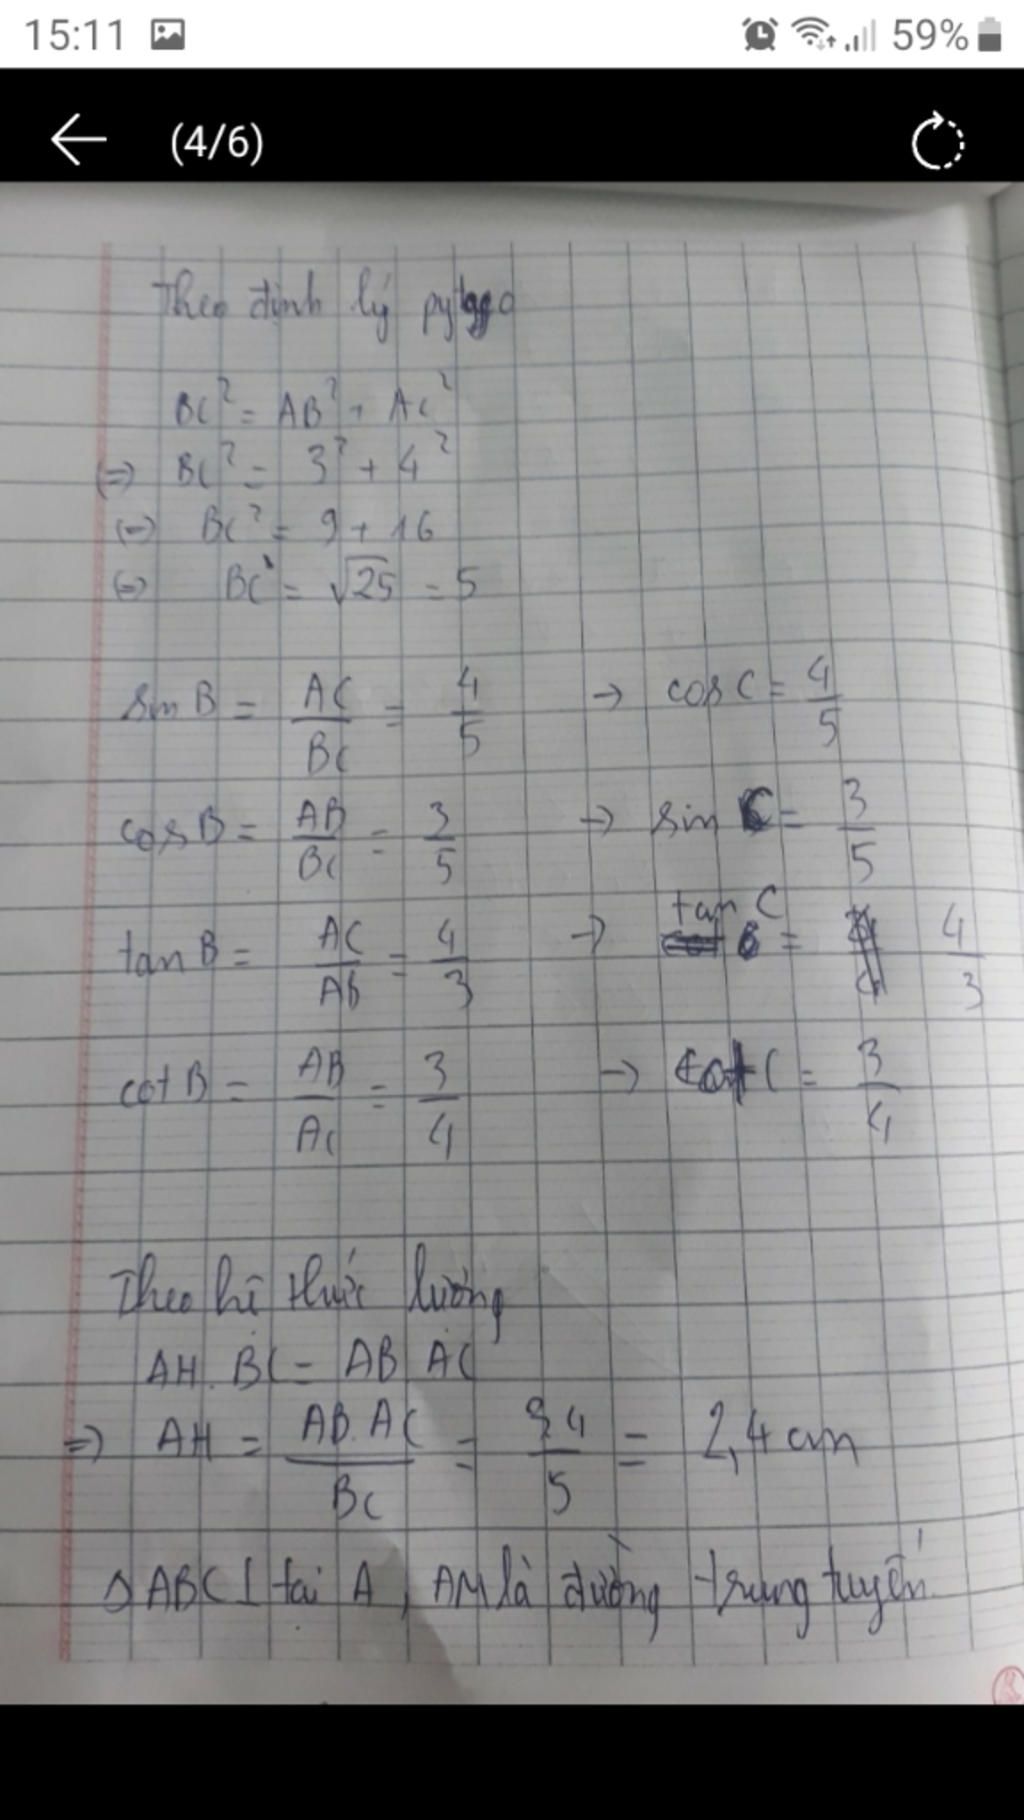 15:11 59%
(4/6)
Theo định lý pytago
BC² = AB² + AC²
(=) BC² = 3² + 4²
(=) BC² = 9 + 16
(=) BC = √25 = 5
sin B = AC/BC = 4/5 → cos C = 4/5
cos B = AB/BC = 3/5 → sin C = 3/5
tan B = AC/AB = 4/3 → tan C = 4/3
cot B = AB/AC = 3/4 → cot C = 3/4
Theo hệ thức lượng
AH. BC = AB. AC
=) AH = AB. AC/BC = 3.4/5 = 2,4 cm
Δ ABC ⊥ tại A, AM là đường trung tuyến.